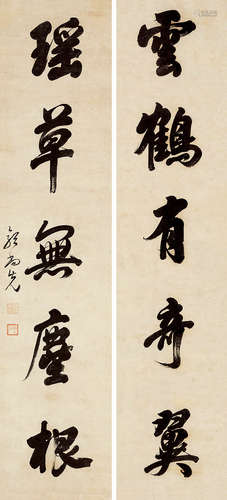 雲鶴有奇翼
瑶草無塵根
郭尚先